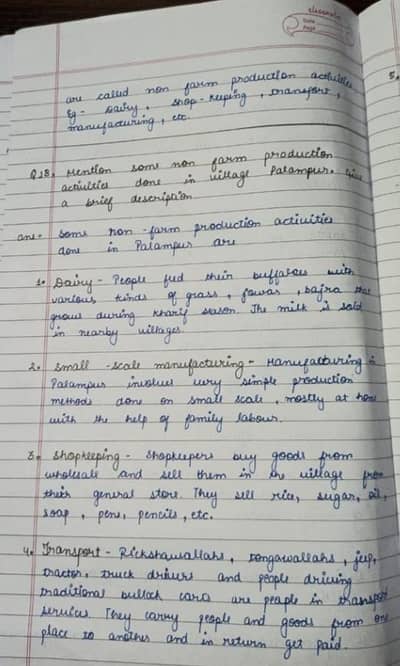 classmate
Date
Page
are called non farm production activities
Eg - Dairy, shop-keeping, transport,
manufacturing, etc.
Q18. Mention some non farm production
activities done in village Palampur. Give
a brief description
ans. Some non-farm production activities
done in Palampur are
1. Dairy - People fed their buffaloes with
various kinds of grass, jowar, bajra that
grows during kharif season. The milk is sold
in nearby villages.
2. Small-scale manufacturing - Manufacturing in
Palampur involves very simple production
methods done on small scale, mostly at home
with the help of family labour.
3. Shopkeeping - Shopkeepers buy goods from
wholesale and sell them in the village from
their general store. They sell rice, sugar, oil,
soap, pens, pencils, etc.
4. Transport - Rickshawallahs, tongawallahs, jeep,
tractor, truck drivers and people driving
traditional bullock cars are people in transport
services. They carry people and goods from one
place to another and in return get paid.
5.